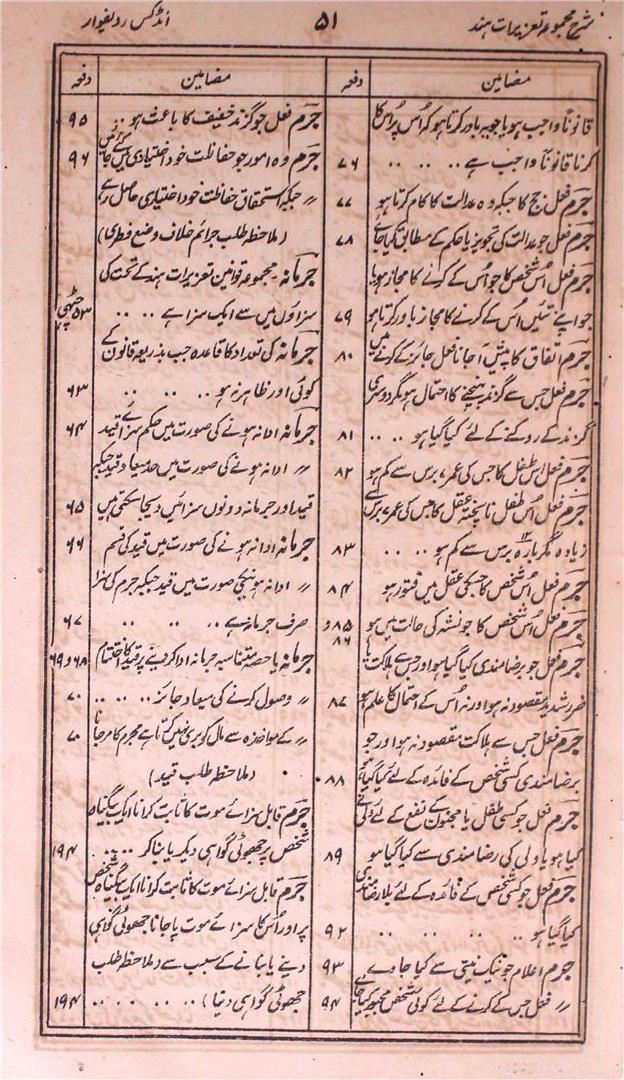 شرح مجموعہ تعزیرات ہند ۵۱ انڈکس ردیفوار
مضامین دفعہ
قانوناً واجب ہو یا جو یہ باور کرتا ہو کہ اُس پر اس کا
کرنا قانوناً واجب ہے .. .. .. ۷۶
جرم فعل جج کا جبکہ وہ عدالت کا کام کرتا ہو ۷۷
جرم فعل جو عدالت کی تجویز یا حکم کے مطابق کیا جائے ۷۸
جرم فعل اُس شخص کا جو اُس کے کرنے کا مجاز ہو یا
جو اپنے تئیں اُس کے کرنے کا مجاز باور کرتا ہو ۷۹
جرم اتفاق کا پیش آجانا فعل جائز کے کرنے میں ۸۰
جرم فعل جس سے گزند پہنچنے کا احتمال ہو مگر دوسری
گزند کے روکنے کے لئے کیا گیا ہو .. .. ۸۱
جرم فعل اس طفل کا جس کی عمر ۷ برس سے کم ہو ۸۲
جرم فعل اُس طفل ناپختہ عقل کا جس کی عمر ۷ برس سے
زیادہ مگر بارہ ۱۲ برس سے کم ہو .. .. ۸۳
جرم فعل اُس شخص کا جسکی عقل میں فتور ہو ۸۴
جرم فعل اُس شخص کا جو نشہ کی حالت میں ہو ۸۵ و ۸۶
جرم فعل جو برضامندی کیا گیا ہو اور جس سے ہلاکت یا
ضرر شدید مقصود نہ ہو اور نہ اُس کے احتمال کا علم ہو ۸۷
جرم فعل جس سے ہلاکت مقصود نہ ہو اور جو
برضامندی کسی شخص کے فائدہ کے لئے کیا گیا ہو ۸۸
جرم فعل جو کسی طفل یا مجنون کے نفع کے لئے ولی نے
کیا ہو یا ولی کی رضامندی سے کیا گیا ہو ۸۹
جرم فعل جو کسی شخص کے فائدہ کے لئے بلا رضامندی
کیا گیا ہو .. .. .. .. ۹۲
جرم اعلام جو نیک نیتی سے کیا جاوے ۹۳
〃 فعل جس کے کرنے کے لئے کوئی شخص مجبور کیا جائے ۹۴
مضامین دفعہ
جرم فعل جو گزند خفیف کا باعث ہو .. ۹۵
جرم وہ امور جو حفاظت خود اختیاری میں کئے جائیں ۹۶
〃 جبکہ استحقاق حفاظت خود اختیاری حاصل رہے
(ملاحظہ طلب جرائم خلاف وضع فطری)
جرمانہ۔ مجموعہ قوانین تعزیرات ہند کے تحت کی
سزاؤں میں سے ایک سزا ہے .. .. ۵۳ چھٹی
جرمانہ کی تعداد کا قاعدہ جب بذریعہ قانون کے
کوئی اور ظاہر نہ ہو .. .. .. ۶۳
جرمانہ ادا نہ ہونے کی صورت میں حکم سزائے قید ۶۴
〃 ادا نہ ہونے کی صورت میں حد میعاد قید جبکہ
قید اور جرمانہ دونوں سزائیں دیجاسکتی ہیں ۶۵
جرمانہ ادا نہ ہونے کی صورت میں قید کی قسم ۶۶
〃 ادا نہ ہونیکی صورت میں قید جبکہ جرم کی سزا
صرف جرمانہ ہے .. .. .. ۶۷
جرمانہ یا حصہ متناسبہ جرمانہ ادا کر دینے پر قید کا اختتام ۶۸ و ۶۹
〃 وصول کرنے کی میعاد جائز .. .. ۷۰
〃 کے مواخذہ سے مال کو بری نہیں کرتا ہے مجرم کا مر جانا ۷۰
(ملاحظہ طلب قید)
جرم قابل سزائے موت کا ثابت کرانا ایک بیگناہ
شخص پر جھوٹی گواہی دیکر یا بنا کر .. .. ۱۹۴
جرم قابل سزائے موت کا ثابت کرانا ایک بیگناہ شخص
پر اور اُس کا سزائے موت پا جانا جھوٹی گواہی
دینے یا بنانے کے سبب سے (ملاحظہ طلب
جھوٹی گواہی دینا) .. .. .. ۱۹۴